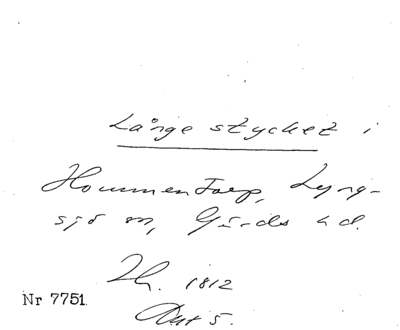 Långe stycket i
Hommentorp, Lyng-
sjö sn, Gärds hd.
Th. 1812
Akt 5.
Nr 7751.